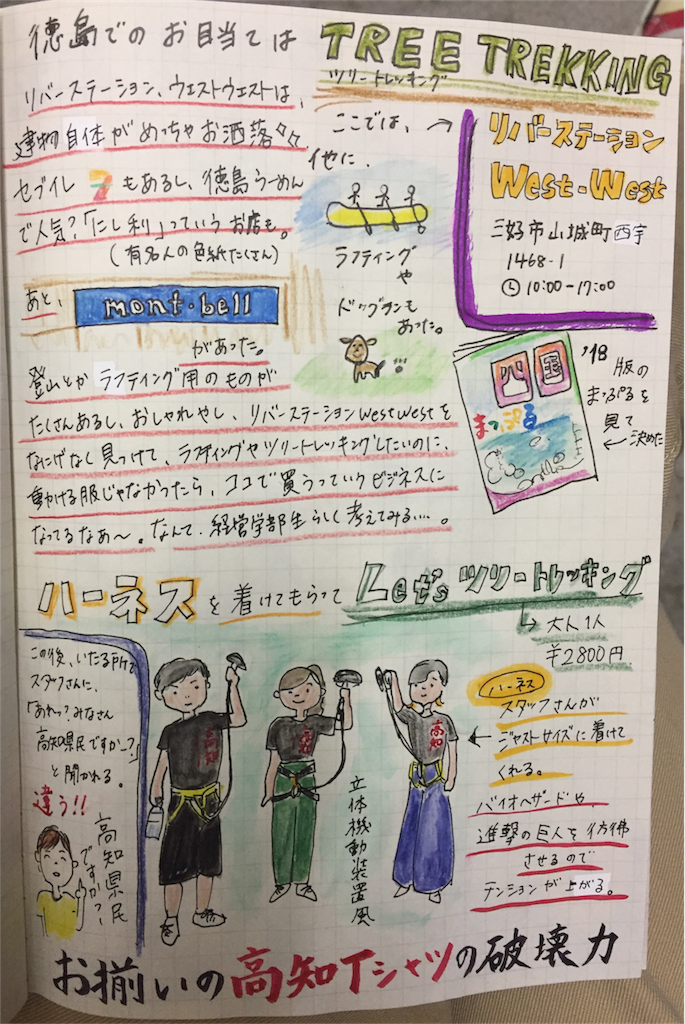 徳島でのお目当ては
TREE TREKKING
ツリートレッキング
リバーステーション、ウエストウエストは、
建物自体がめっちゃお洒落
セブイレ7もあるし、徳島らーめん
で人気?「にし利」っていうお店も。
(有名人の色紙たくさん)
あと、
mont・bell
があった。
登山とかラフティング用のものが
たくさんあるし、おしゃれやし、リバーステーションWestWestを
なにげなく見つけて、ラフティングやツリートレッキングしたいのに、
動ける服じゃなかったら、ココで買うっていうビジネスに
なってるなあ〜。なんて、経営学部生らしく考えてみる…。
ここでは、→
他に、
ラフティング
や
ドッグランも
あった。
リバーステーション
West-West
三好市山城町西宇
1468-1
10:00-17:00
四国
まっぷる
'18
版の
まっぷるを
見て
←決めた
ハーネスを着けてもらって
Let's ツリートレッキング
→大人1人
¥2800円
この後、いたる所で
スタッフさんに、
「あれっ?みなさん
高知県民ですか〜?」
と聞かれる。
違う!!
高知県民
ですか?〜
高知
高知
高知
立体機動装置風
ハーネス
スタッフさんが
←ジャストサイズに着けて
くれる。
バイオハザードや、
進撃の巨人を彷彿
させるので
テンションが上がる。
お揃いの高知Tシャツの破壊力